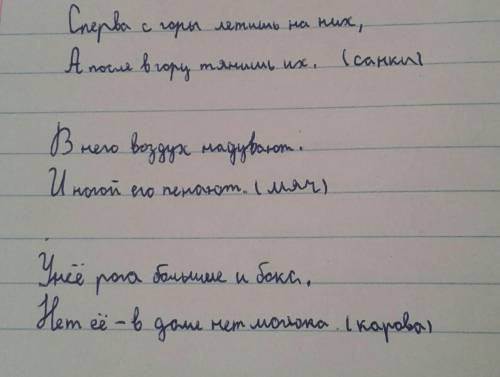 Сперва с горы летишь на них,
А после в гору тянишь их. (санки)
В него воздух надувают.
И ногой его пенают. (мяч)
У неё рога большие и бока,
Нет её – в доме нет молока. (карова)